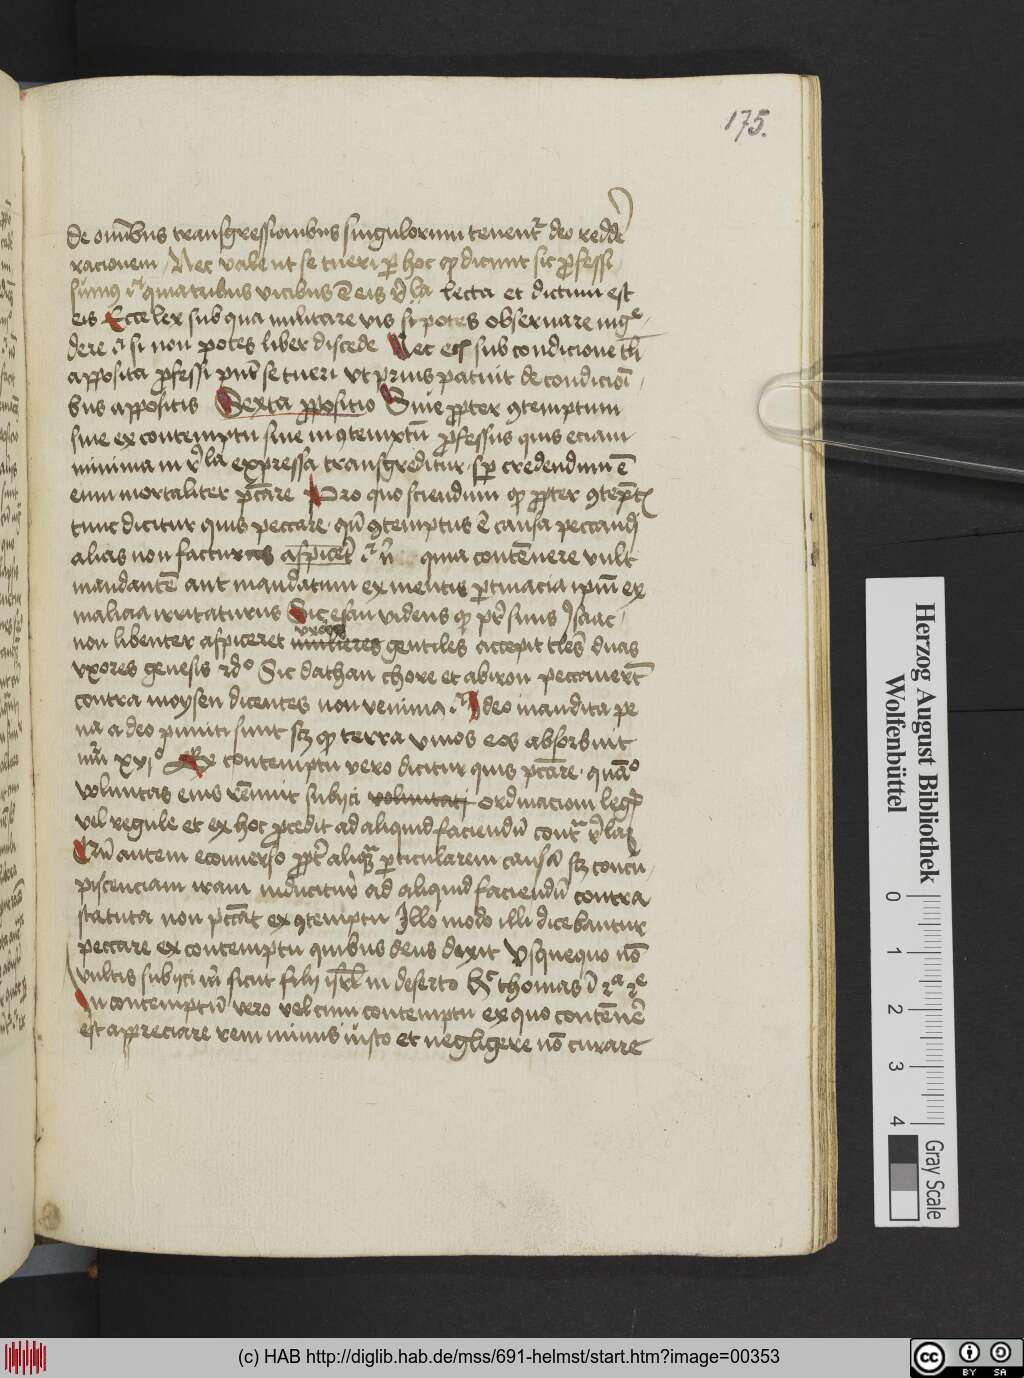 175.
de om̄ibus transgressionibus singulorum tenent̉ deo redde̾
racionem Nec valent se tueri ꝑ hoc qꝫ dicunt sic ꝓfessi
sumus quia tribus vicibus ē eis rl̾a lecta et dictum est
eis Ecce lex sub qua militare vis si potes obseruare inge
dere si non potes liber discede Nec sub condicione
apposita ꝓfessi pn̄t se tueri vt prius patuit de condicioī
bus appositis Sexta ꝓpositio Siue ꝓpter ꝯtemptum
siue ex contemptu siue in ꝯtemptū ꝓfessus quis eciam
minima in rl̾a expressa transgreditur sꝑ credendum ē
eum mortaliter pc̄care Pro quo sciendum qꝫ ꝓpter ꝯtēptū
tunc dicitur quis peccare qn̄ ꝯtemptus ē causa peccandj
alias non facturus quia contēnere vult
mandantē aut mandatum ex mentis ꝑtinacia ipm̄ ex
malicia irritaturus Sic esau videns qꝫ pr̄ suus ysaac
non libenter aspiceret mulieres gentiles accepit duas
uxores
vxores genesis Sic dathan chore et abiron peccauerūt
contra moysen dicentes non venimꝰ Ideo inaudita pe
na a deo puniti sunt scꝫ qꝫ terra viuos eos absorbuit
nu̅ri xvjo Ex contemptu vero dicitur quis pc̄care quādo
voluntas eius rēnuit subijci voluntati ordinacioni legis
vel regule et ex hoc ꝓcedit ad aliquid faciendū contra rl̾a
Cū autem econuerso ꝓpt̾ aliquā ꝑticularem causā scꝫ concu
piscenciam iram inducitur ad aliquid faciendū contra
statuta non pc̄cat ex ꝯtemptu Illo modo illi dicebantur
peccare ex contemptu quibus deus dixit Vsquequo nō
vultis subijci m̄ sicut filij isrl̄ in deserto thomas ī 2a 2e
In contemptū vero vel cum contemptu ex quo contēne̾
est appreciare rem minus iusto et negligere nō curare
Herzog August Bibliothek
Wolfenbüttel
0 1 2 3 4
Gray Scale
(c) HAB http://diglib.hab.de/mss/691-helmst/start.htm?image=00353
cc BY SA